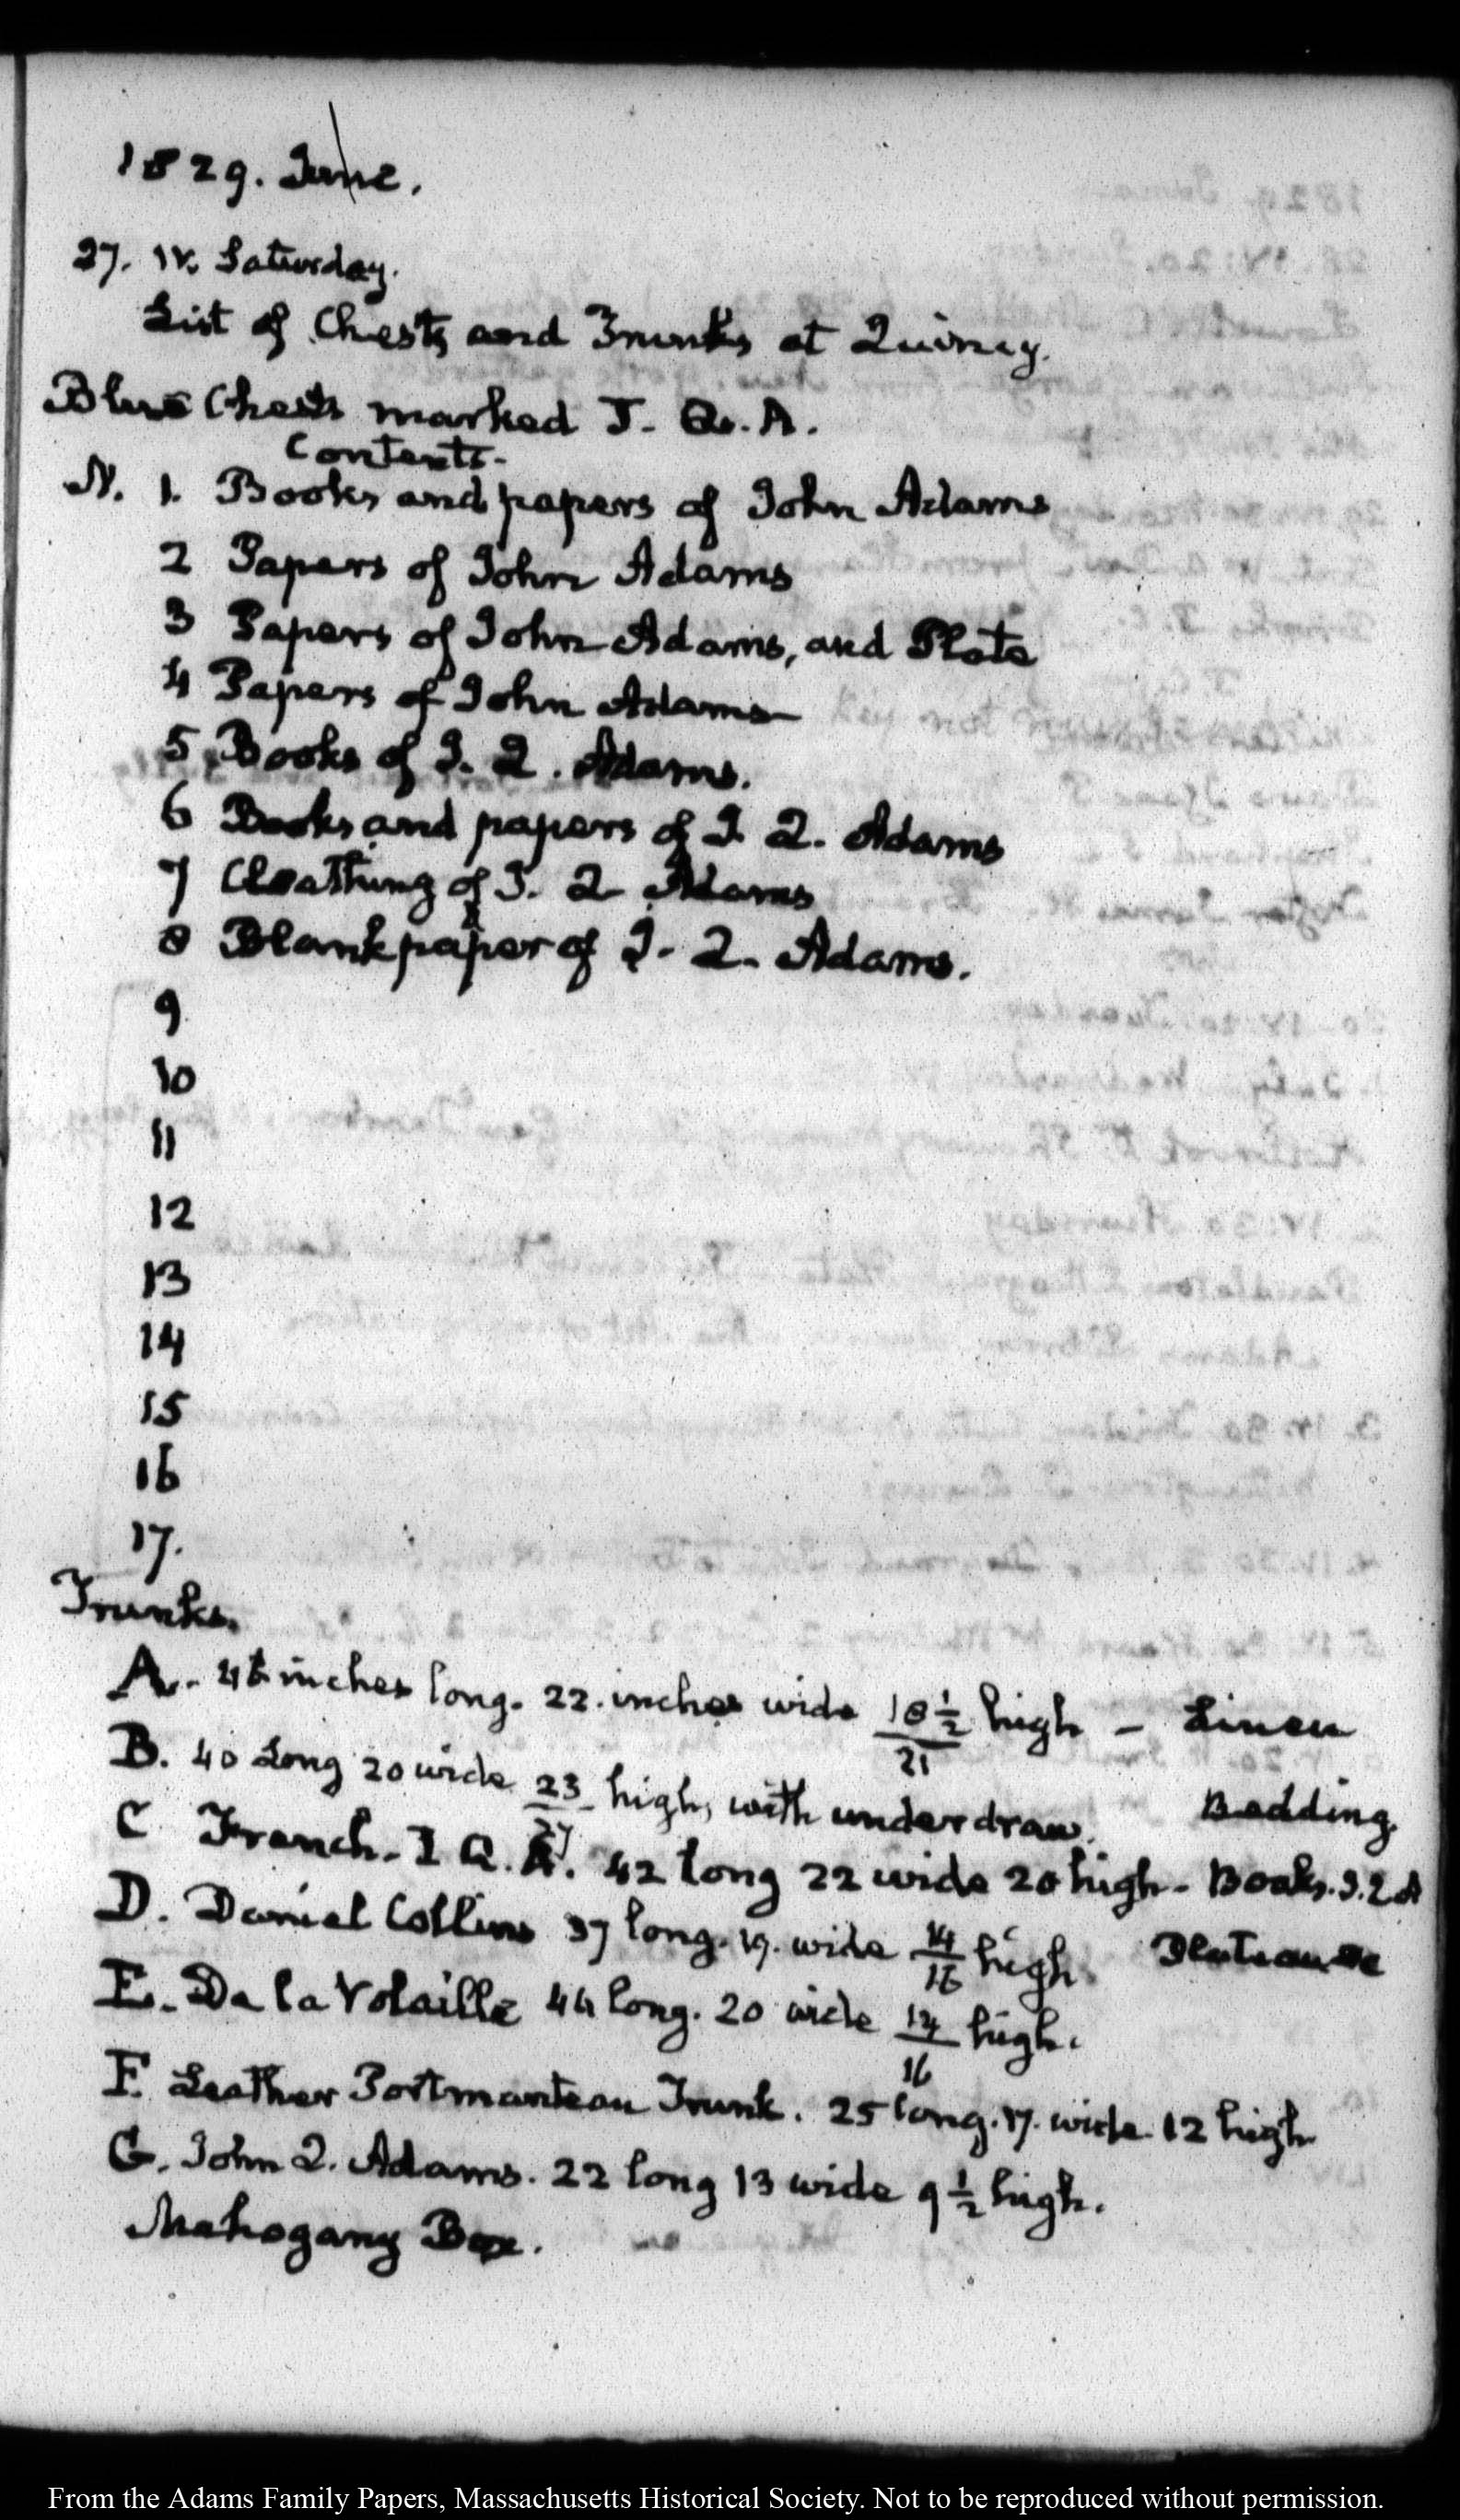 1829. June.
27. IV. Saturday.
List of Chests and Trunks at Quincy.
Blue Chests marked J. Q. A.
Contents.
N. 1. Books and papers of John Adams
2 Papers of John Adams
3 Papers of John Adams, and Plate
4 Papers of John Adams
5 Books of J. Q. Adams.
6 Books and papers of J. Q. Adams
7 Cloathing of J. Q Adams
8 Blank paper of J. Q. Adams.
9
10
11
12
13
14
15
16
17.
Trunks.
A. inches long. 22. inches wide 18 1/2 / 21 high – Linen
B. 40 Long 20 wide 23 / 27 high, with underdraw. Bedding.
C French. I Q. A. 42 long 22 wide 20 high - Books. J. Q A
D. Daniel Collins 37 long. 19. wide 14 / 16 high. Plateau
E. De la Volaille 44 long. 20 wide 14 / 16 high.
F. Leather Portmanteau Trunk. 25 long. 17. wide 12 high
G. John Q. Adams. 22 long 13 wide 9 1/2 high.
Mahogany Box.
From the Adams Family Papers, Massachusetts Historical Society. Not to be reproduced without permission.